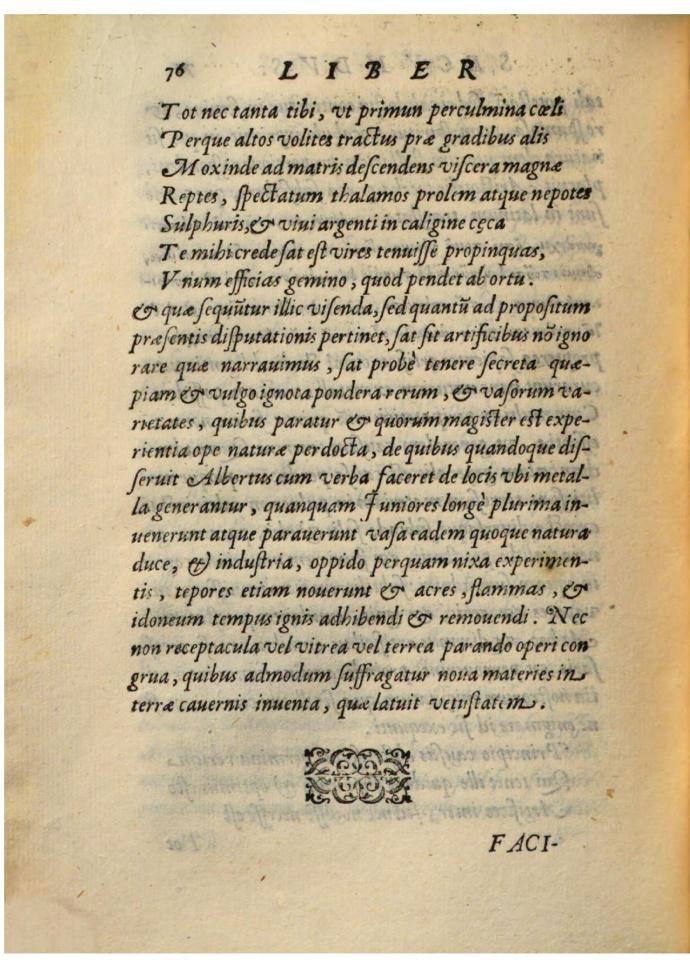 76 LIBER
Tot nec tanta tibi, vt primun perculmina cœli
Perque altos volites tractus præ gradibus alis
Mox inde ad matris descendens viscera magnæ
Reptes, spectatum thalamos prolem atque nepotes
Sulphuris, & viui argenti in caligine cęca
Te mihi crede sat est vires tenuisse propinquas,
Vnum efficias gemino, quod pendet ab ortu.
& quæ sequūtur illic visenda, sed quantū ad propositum
præsentis disputationis pertinet, sat sit artificibus nō igno
rare quæ narrauimus, sat probè tenere secreta quæ-
piam & vulgo ignota pondera rerum, & vasorum va-
rietates, quibus paratur & quorum magister est expe-
rientia ope naturæ perdocta, de quibus quandoque dis-
seruit Albertus cum verba faceret de locis vbi metal-
la generantur, quanquam Juniores longè plurima in-
uenerunt atque parauerunt vasa eadem quoque natura
duce, & industria, oppido perquam nixa experimen-
tis, tepores etiam nouerunt & acres, flammas, &
idoneum tempus ignis adhibendi & remouendi. Nec
non receptacula vel vitrea vel terrea parando operi con
grua, quibus admodum suffragatur noua materies in
terræ cauernis inuenta, quæ latuit vetustatem.
FACI-